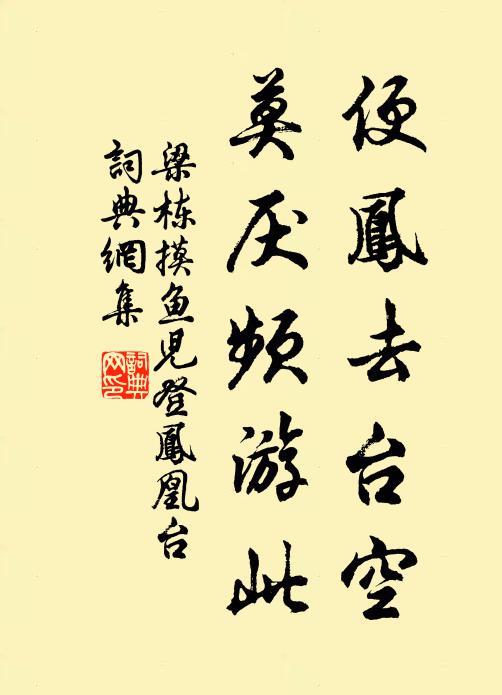 便鳳去台空
莫厌频游此
梁栋摸鱼児登鳳凰台
詞典網集
詞典
网印